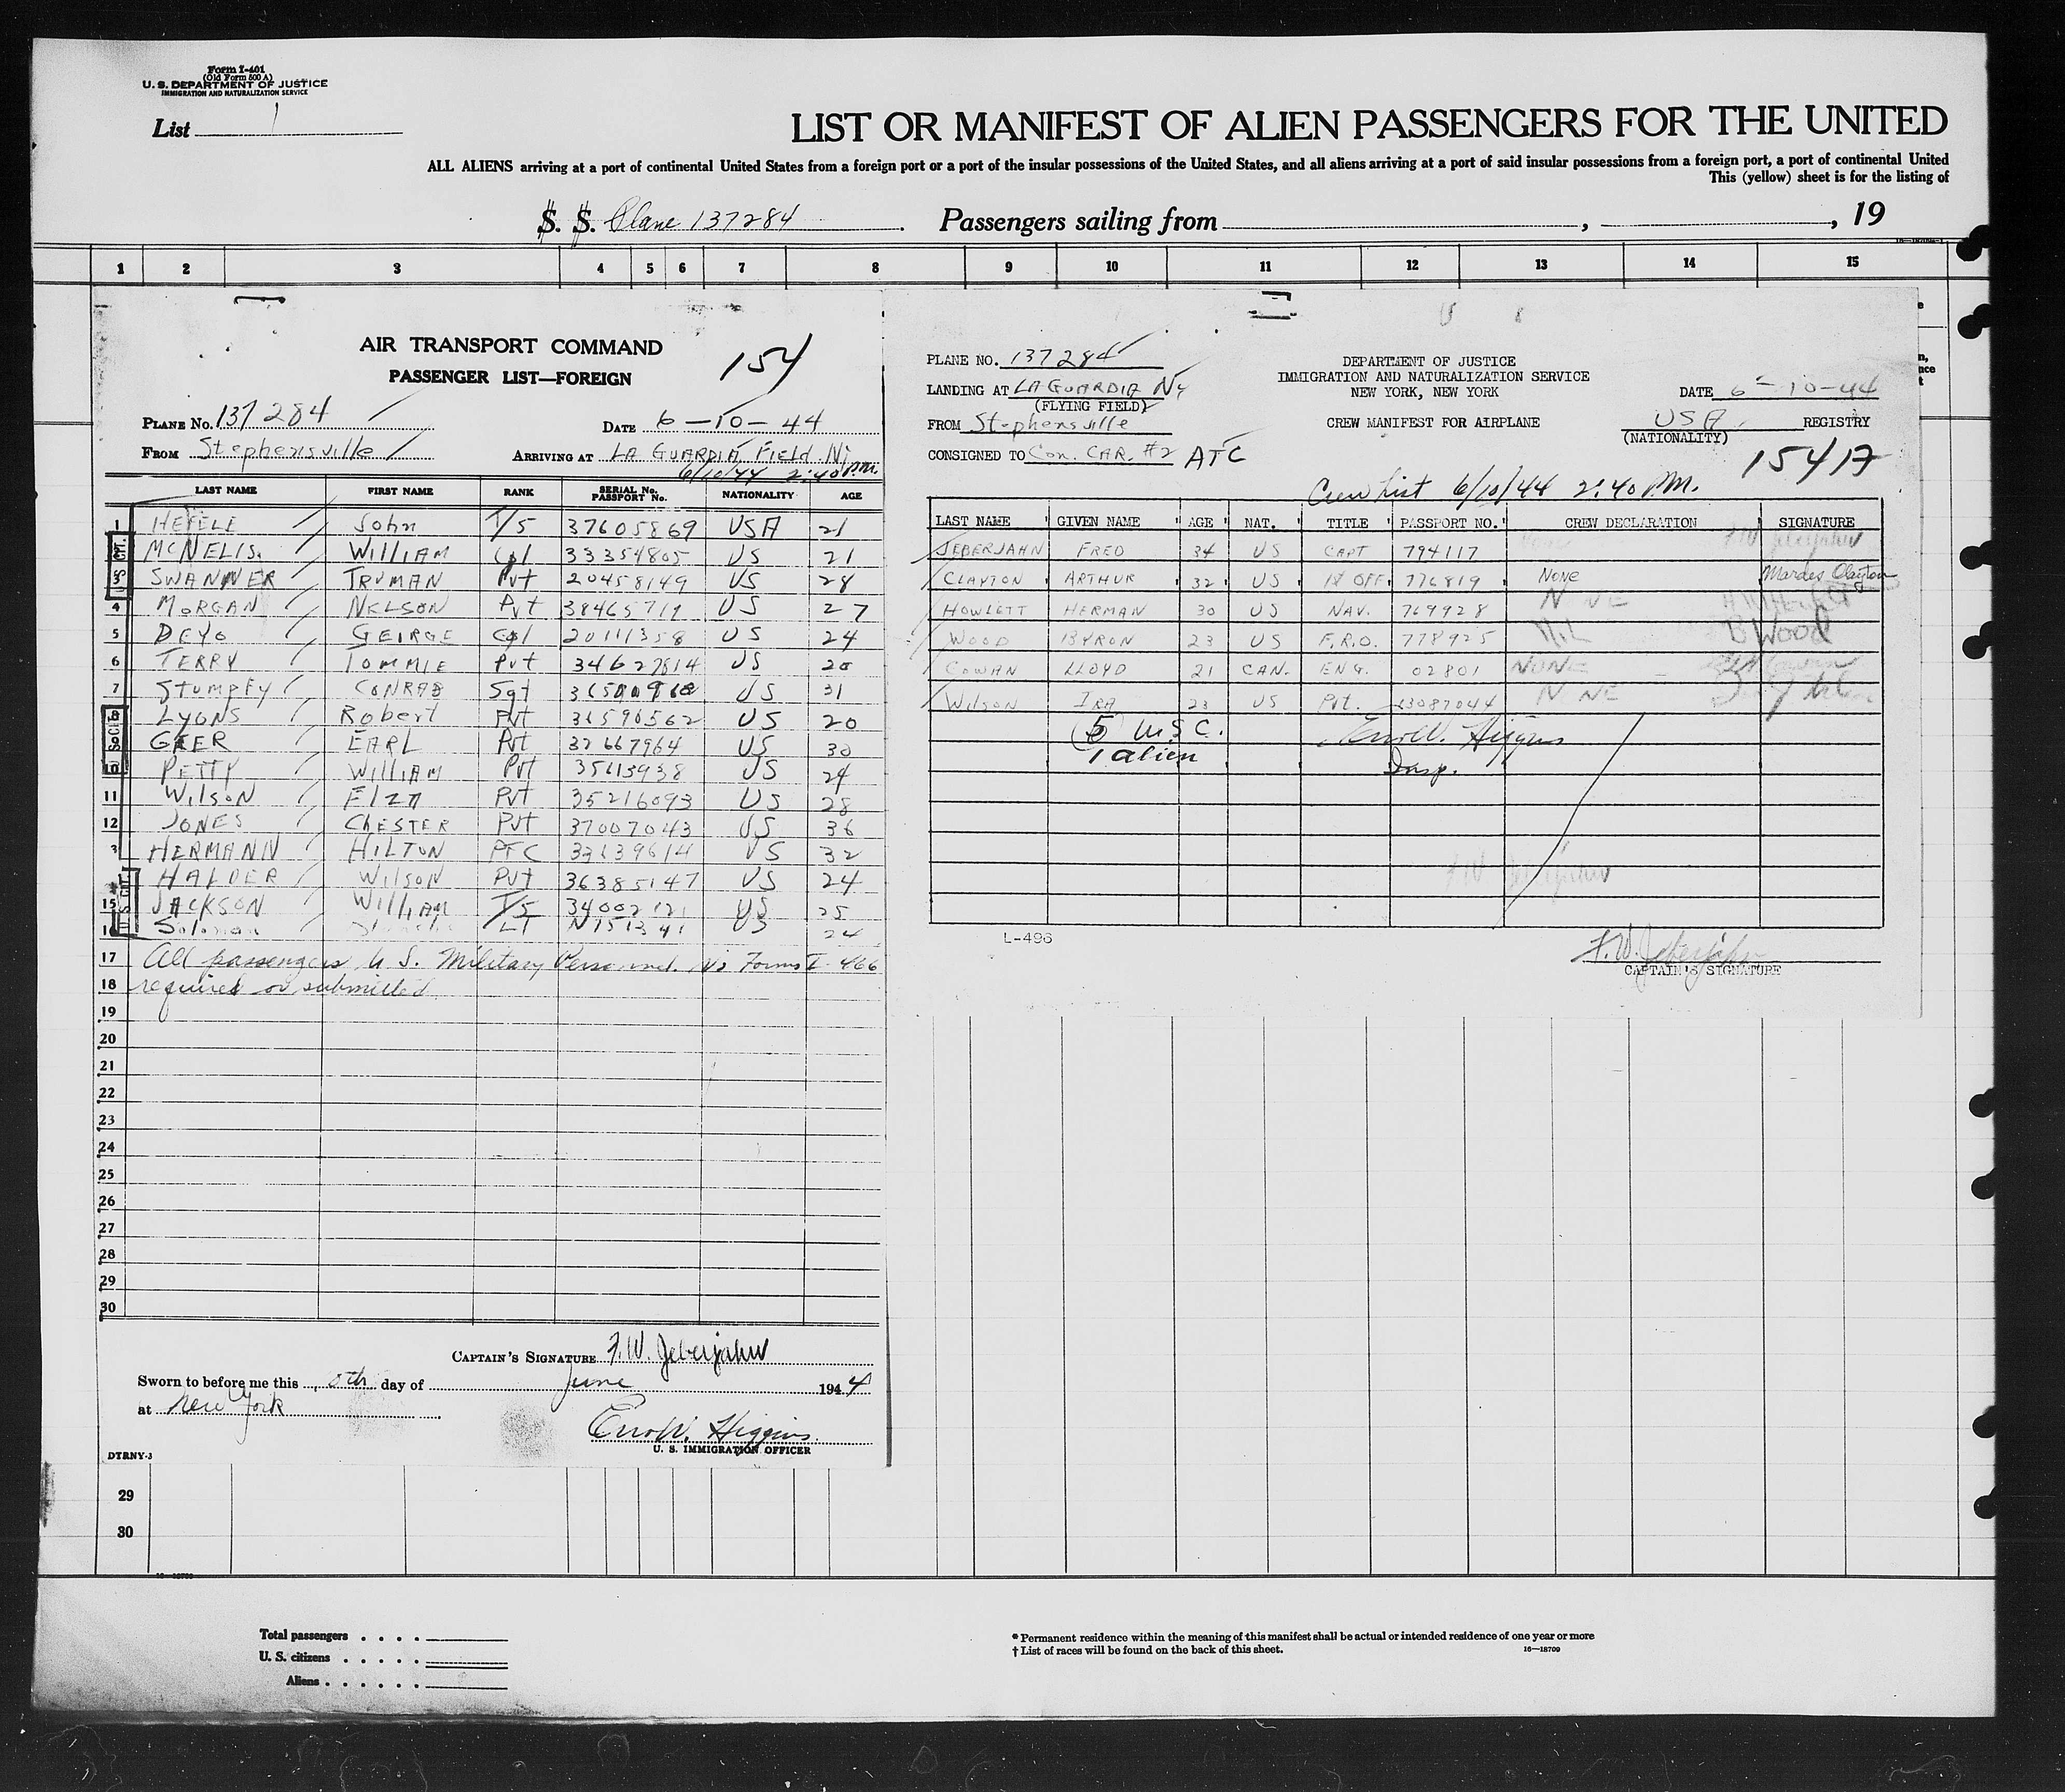 Form I-401
(Old Form 500 A)
U. S. DEPARTMENT OF JUSTICE
IMMIGRATION AND NATURALIZATION SERVICE
List 1
LIST OR MANIFEST OF ALIEN PASSENGERS FOR THE UNITED
ALL ALIENS arriving at a port of continental United States from a foreign port or a port of the insular possessions of the United States, and all aliens arriving at a port of said insular possessions from a foreign port, a port of continental United
This (yellow) sheet is for the listing of
S. S. Plane 137284 Passengers sailing from , , 19
1 2 3 4 5 6 7 8 9 10 11 12 13 14 15
AIR TRANSPORT COMMAND
PASSENGER LIST—FOREIGN
154
PLANE No. 137284 DATE 6-10-44
FROM Stephensville ARRIVING AT LA GUARDIA FIELD NY
6/10/44 2:40 P.M.
LAST NAME FIRST NAME RANK SERIAL No. PASSPORT No. NATIONALITY AGE
1 HEFELE John T/5 37605869 USA 21
MCNELIS. WILLIAM Cpl 33354805 US 21
3 SWANNER TRUMAN Pvt 20458149 US 28
4 MORGAN NELSON Pvt 38465719 US 27
5 DEYO GEIRGE Cpl 20111358 US 24
6 TERRY TOMMIE Pvt 34627814 US 20
7 STUMPFY CONRAD Sgt US 31
8 LYONS Robert Pvt 36596562 US 20
9 GEER EARL Pvt 32667964 US 30
10 PETTY WILLIAM Pvt 35613938 US 24
11 WILSON Pvt 35216093 US 28
12 JONES CHESTER Pvt 37007043 US 36
3 HERMANN HILTON PFC 33639614 US 32
HALDER WILSON Pvt 36385147 US 24
15 JACKSON WILLIAM T/5 34002121 US 25
16 Solomon LT N151341 US 24
17 All passengers U S. Military Personnel. No Forms I-466
18 required or submitted
19
20
21
22
23
24
25
26
27
28
29
30
CAPTAIN'S SIGNATURE F.W. Jeberjahn
Sworn to before me this 10th day of June 1944
at New York
Higgins
U. S. IMMIGRATION OFFICER
DTRNY-3
PLANE NO. 137284
LANDING AT LA GUARDIA NY
(FLYING FIELD)
FROM Stephensville
CONSIGNED TO Con. CAR. #2 ATC
DEPARTMENT OF JUSTICE
IMMIGRATION AND NATURALIZATION SERVICE
NEW YORK, NEW YORK
CREW MANIFEST FOR AIRPLANE
DATE 6-10-44
USA REGISTRY
(NATIONALITY)
154 17
Crew List 6/10/44 2:40 PM.
LAST NAME GIVEN NAME AGE NAT. TITLE PASSPORT NO. CREW DECLARATION SIGNATURE
JEBERJAHN FRED 34 US CAPT 794117 None FW Jeberjahn
CLAYTON ARTHUR 32 US 1st OFF. 776819 NONE Clayton
HOWLETT HERMAN 30 US NAV. 769928 NONE
WOOD BYRON 23 US F.R.O. 778925 NIL B Wood
COWAN LLOYD 21 CAN. ENG. 02801 NONE
WILSON IRA 23 US Pvt. 13087044 NONE
5 U.S.C.
1 alien
Higgins
Insp.
L-496
F.W. Jeberjahn
CAPTAIN'S SIGNATURE
29
30
Total passengers
U. S. citizens
Aliens
* Permanent residence within the meaning of this manifest shall be actual or intended residence of one year or more
† List of races will be found on the back of this sheet.
16—18709